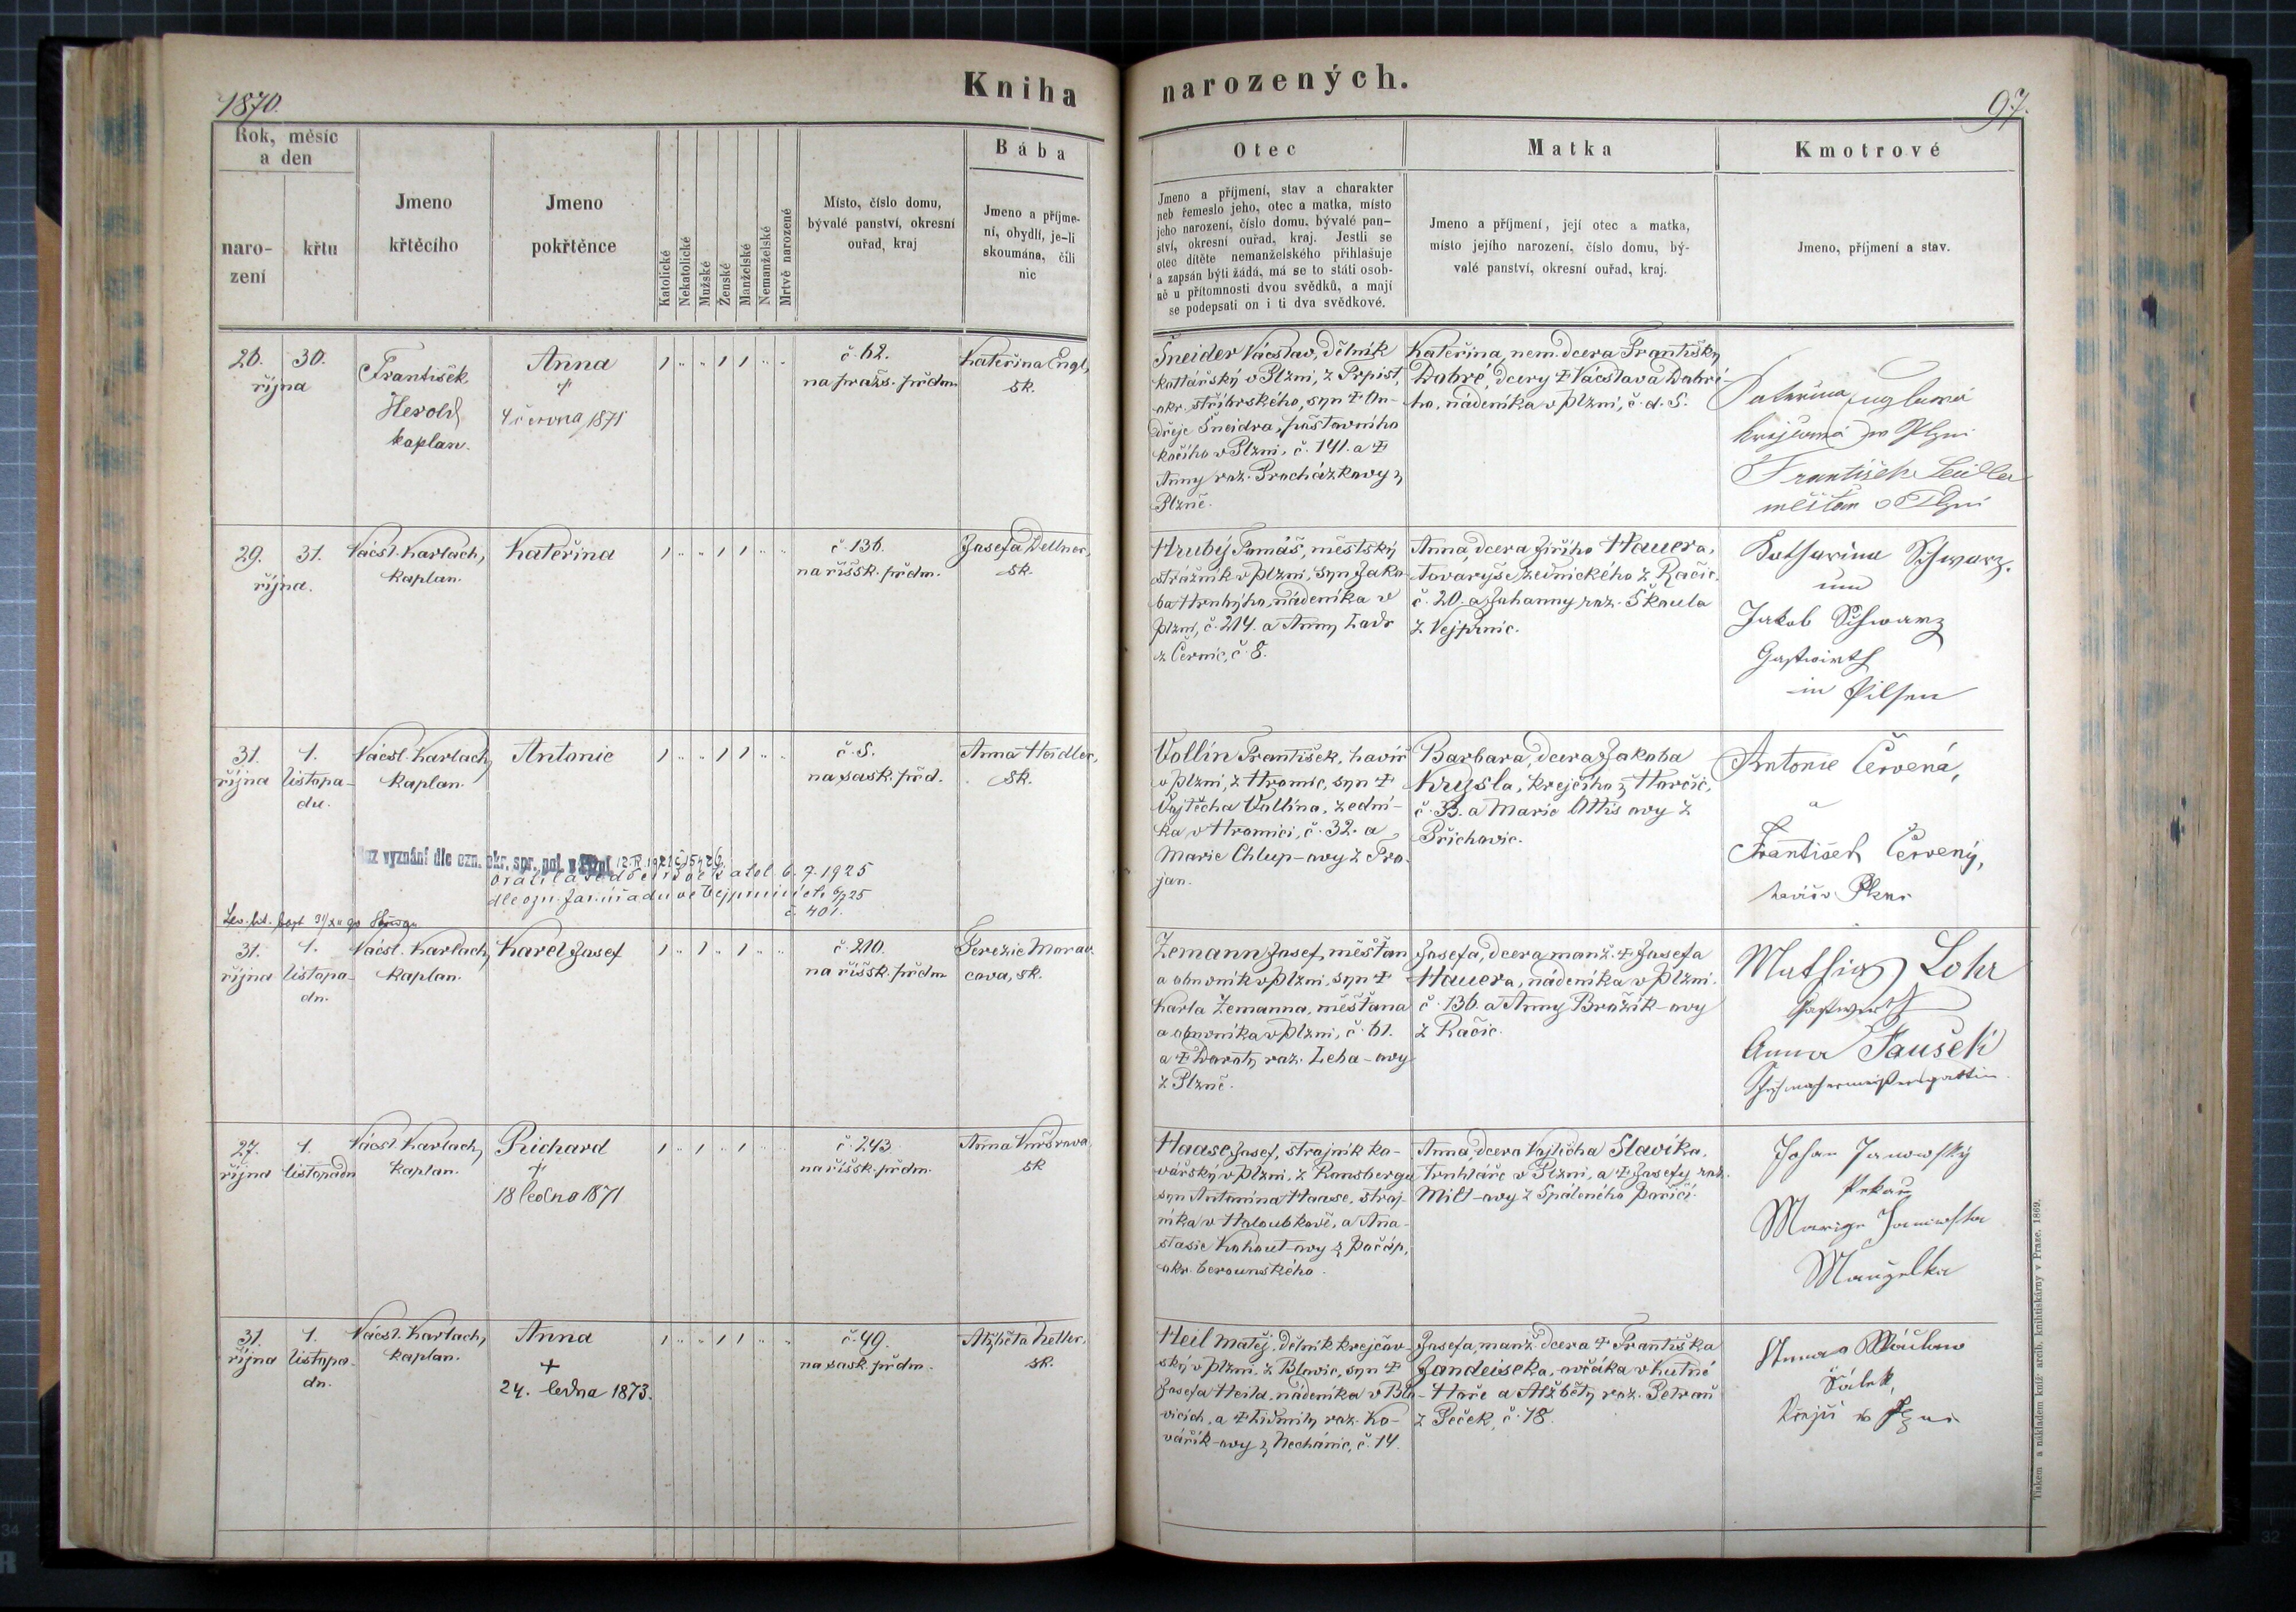 Kniha narozených.
1870.
97.
Rok, měsíc
a den
naro-
zení
křtu
Jmeno
křtěcího
Jmeno
pokřtěnce
Katolické
Nekatolické
Mužské
Ženské
Manželské
Nemanželské
Mrtvě narozené
Místo, číslo domu,
bývalé panství, okresní
ouřad, kraj
Bába
Jmeno a příjme-
ní, obydlí, je-li
skoumána, čili
nic
Otec
Jmeno a příjmení, stav a charakter
neb řemeslo jeho, otec a matka, místo
jeho narození, číslo domu, bývalé pan-
ství, okresní ouřad, kraj. Jestli se
otec dítěte nemanželského přihlašuje
a zapsán býti žádá, má se to státi osob-
ně u přítomnosti dvou svědků, a mají
se podepsati on i ti dva svědkové.
Matka
Jmeno a příjmení, její otec a matka,
místo jejího narození, číslo domu, bý-
valé panství, okresní ouřad, kraj.
Kmotrové
Jmeno, příjmení a stav.
26. 30.
října
František
Herold
kaplan.
Anna
4 června 1871
č. 62.
na pražs. předm.
Kateřina Engl,
sk.
Šneider Vácslav, dělník
kotlářský v Plzni, z Prpist,
okr. stříbrského, syn † On-
dřeje Šneidra, poštovního
kočího v Plzni, č. 141. a †
Anny roz. Procházkovy z
Plzně.
Kateřina, nem. dcera Františky
Dobré, dcery † Vácslava Dobré-
ho, nádeníka v Plzni, č. d. 5.
Kateřina
krejčová v Plzni
František
měšťan v Plzni
29. 31.
října.
Vácsl. Karlach,
kaplan.
Kateřina
č. 136.
na říšsk. předm.
Josefa Dellner,
sk.
Hrubý Tomáš, městský
strážník v Plzni, syn Jako-
ba Hrubýho, nádeníka v
Plzni, č. 214. a Anny Ladr
z Černic, č. 8.
Anna, dcera Jiřího Hauera,
tovaryše zednického z Račic.
č. 20. a Johanny roz. Škoula
z Vejprnic.
Katharina Schwarz.
und
Jakob Schwarz
Gastwirth
in Pilsen
31. 1.
října listopa-
du.
Vácsl. Karlach,
kaplan.
Antonie
č. 5.
na sask. před.
Anna Hondler,
sk.
Vollín František, havíř
v Plzni, z Hromic, syn †
Vojtěcha Vollína, zední-
ka v Hromici, č. 32. a
Marie Chlup-ovy z Tro-
jan.
Barbara, dcera Jakoba
Krysla, krejčího z Horčic,
č. 33. a Marie Ottis ovy z
Přichovic.
Antonie Červená,
a
František Červený,
bez vyznání dle ozn. okr. spr. pol. v Plzni 12. IV. 1921 č. 15426.
vrátila se do církve katol. 6. 7. 1925
dle ozn. far. úřadu ve Vejprnicích 6/7 25
č. 401.
31. 1.
října listopa-
du.
Vácsl. Karlach,
kaplan.
Karel Josef
č. 210.
na říšsk. předm.
Terezie Morav-
cova, sk.
Zemann Josef, měšťan
a obuvník v Plzni, syn †
Karla Zemanna, měšťana
a obuvníka v Plzni, č. 61.
a † Doroty roz. Leba-ovy
z Plzně.
Josefa, dcera manž. † Josefa
Hauera, nádeníka v Plzni.
č. 136. a Anny Brožík-ovy
z Račic.
Mathias Lohr
Gastwirth
Anna Paušek
Schuhmachermeistersgattin
27. 1.
října listopadu
Vácsl. Karlach,
kaplan.
Richard
†
18 ledna 1871
č. 243.
na říšsk. předm.
Anna
sk
Haase Josef, strojník ko-
vářský v Plzni, z Ronsbergu
syn Antonína Haase, stroj-
níka v Holoubkově, a Ana-
stasie Kohout-ovy z Počáp,
okr. berounského.
Anna, dcera Vojtěcha Slavíka,
truhláře v Plzni, a † Josefy roz.
Milt-ovy z Spáleného Poříčí.
Johan Janowský
Pekař
Manželka
31. 1.
října listopa-
du.
Vácsl. Karlach,
kaplan.
Anna
+
24. ledna 1873.
č. 49.
na sask. předm.
Alžběta Keller,
sk.
Heil Matěj, dělník krejčov-
ský v Plzni, z Blovic, syn †
Josefa Heila, nádeníka v Blo-
vicích, a † Lidmily roz. Ko-
vařík-ovy z Nechánic, č. 14.
Josefa, manž. dcera † Františka
Jandeiseka, ovčáka v Kutné
Hoře a Alžběty roz. Petrau
z Peček, č. 18.
Anna
Tiskem a nákladem kníž. arcib. knihtiskárny v Praze. 1869.